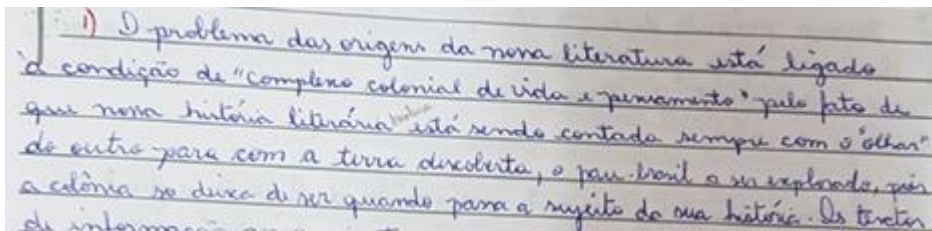 1) O problema das origens da nossa literatura está ligado
à condição de "complexo colonial de vida e pensamento" pelo fato de
que nossa história literária está sendo contada sempre com o "olhar"
do outro para com a terra descoberta, o pau-brasil a ser explorado, pois
a colônia só deixa de ser quando passa a sujeito da sua história. Os textos
de informação